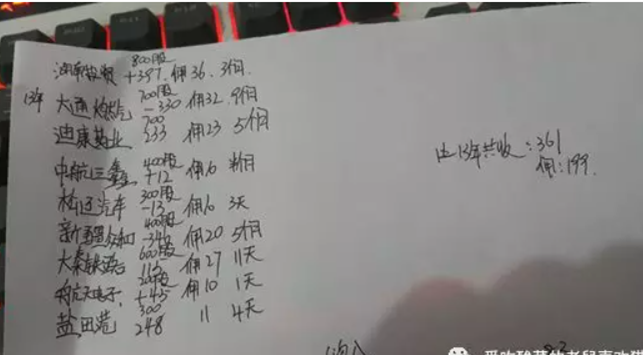 800股
+397 佣36. 3个月.
13年
700股
大通燃气 -330 佣32. 9个月
700
迪康药业 233 佣23 5个月
400股
中航三鑫 +12 佣6 半月
300股
松辽汽车 -13 佣6 3天
400股
新疆众和 -346 佣20 5个月
600股
大秦铁路 115 佣27 11天
200股
航天电子 +45 佣10 1天
300
盐田港 248 11 4天
13年共收:361
佣:199.